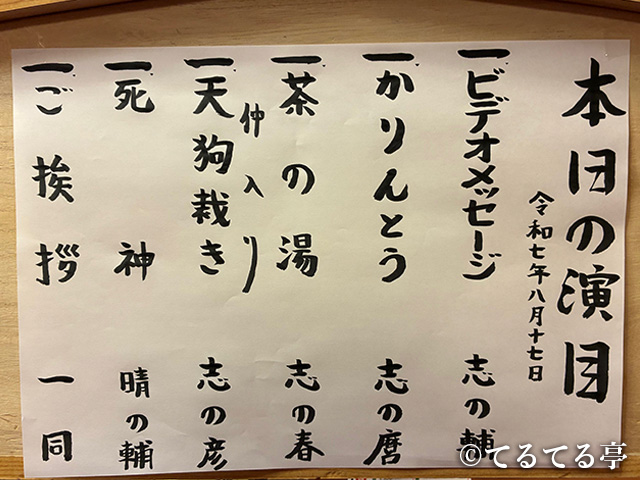 本日の演目
令和七年八月十七日
一ビデオメッセージ 志の輔
一かりんとう 志の麿
一茶の湯 志の春
仲入り
一天狗裁き 志の彦
一死神 晴の輔
一ご挨拶 一同
©てるてる亭